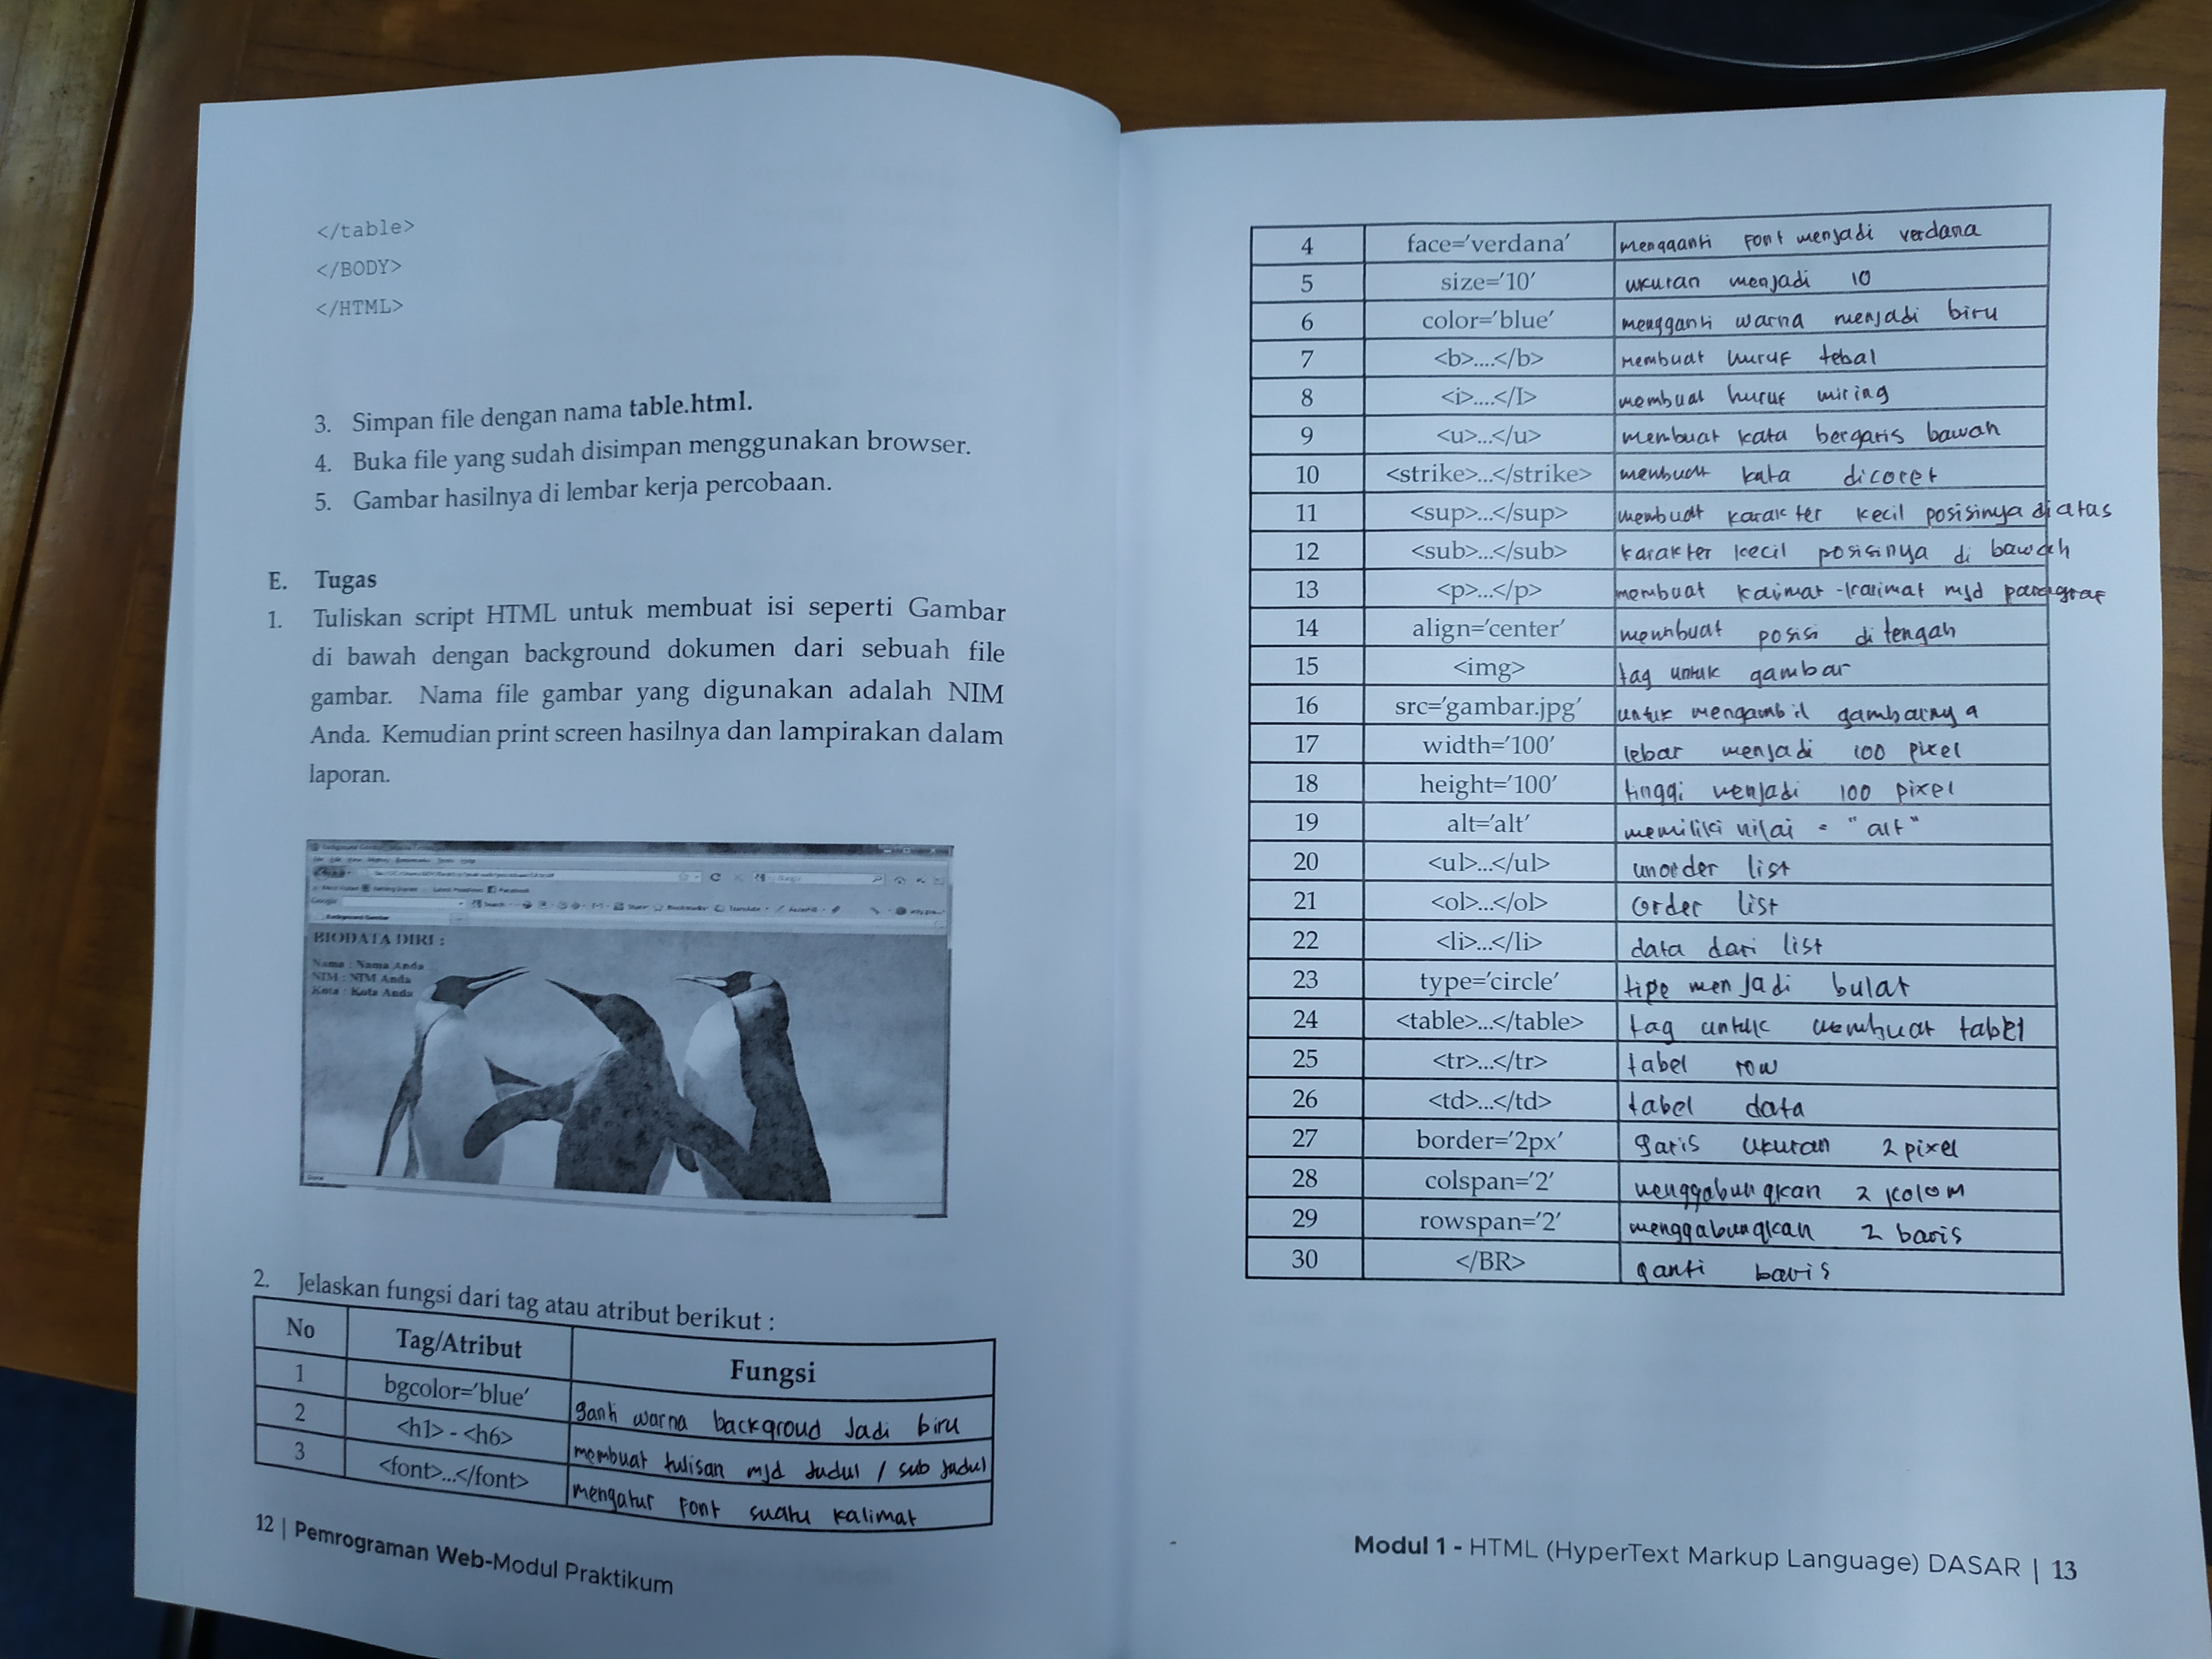 </table>
</BODY>
</HTML>
3. Simpan file dengan nama table.html.
4. Buka file yang sudah disimpan menggunakan browser.
5. Gambar hasilnya di lembar kerja percobaan.
E. Tugas
1. Tuliskan script HTML untuk membuat isi seperti Gambar
di bawah dengan background dokumen dari sebuah file
gambar. Nama file gambar yang digunakan adalah NIM
Anda. Kemudian print screen hasilnya dan lampirakan dalam
laporan.
BIODATA DIRI :
Nama : Nama Anda
NIM : NIM Anda
Kota : Kota Anda
2. Jelaskan fungsi dari tag atau atribut berikut :
No Tag/Atribut Fungsi
1 bgcolor='blue' ganti warna backgroud Jadi biru
2 <h1> - <h6> membuat tulisan mjd Judul / sub judul
3 <font>...</font> mengatur font suatu kalimat
12 | Pemrograman Web-Modul Praktikum
4 face='verdana' mengganti font menjadi verdana
5 size='10' ukuran menjadi 10
6 color='blue' mengganti warna menjadi biru
7 <b>....</b> membuat huruf tebal
8 <i>....</I> membuat huruf miring
9 <u>...</u> membuat kata bergaris bawah
10 <strike>...</strike> membuat kata dicoret
11 <sup>...</sup> membuat karakter kecil posisinya diatas
12 <sub>...</sub> karakter kecil posisinya di bawah
13 <p>...</p> membuat kalimat-kalimat mjd paragraf
14 align='center' membuat posisi ditengah
15 <img> tag untuk gambar
16 src='gambar.jpg' untuk mengambil gambarnya
17 width='100' lebar menjadi 100 pixel
18 height='100' tinggi menjadi 100 pixel
19 alt='alt' memiliki nilai = "alt"
20 <ul>...</ul> unorder list
21 <ol>...</ol> order list
22 <li>...</li> data dari list
23 type='circle' tipe menjadi bulat
24 <table>...</table> tag untuk membuat tabel
25 <tr>...</tr> tabel row
26 <td>...</td> tabel data
27 border='2px' garis ukuran 2 pixel
28 colspan='2' menggabungkan 2 kolom
29 rowspan='2' menggabungkan 2 baris
30 </BR> ganti baris
Modul 1 - HTML (HyperText Markup Language) DASAR | 13